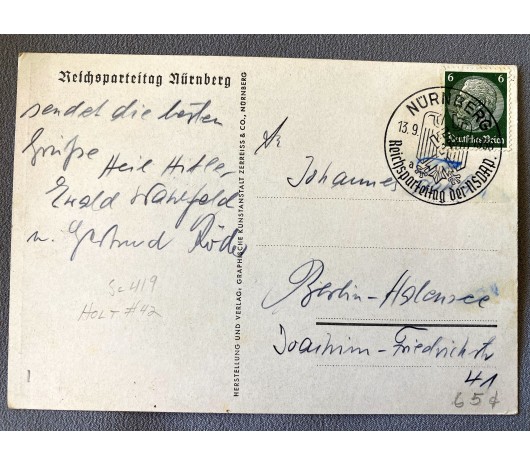 Reichsparteitag Nürnberg
sendet die besten
Grüße Heil Hitler
Ewald
u. Gertrud
Sc 419
HOLT #42
HERSTELLUNG UND VERLAG, GRAPHISCHE KUNSTANSTALT ZERREISS & CO., NÜRNBERG
6 6
Deutsches Reich
NÜRNBERG
13.9.
a
Reichsparteitag der NSDAP.
An
Johannes
Berlin-Halensee
Joachim-Friedrichstr
41
65¢